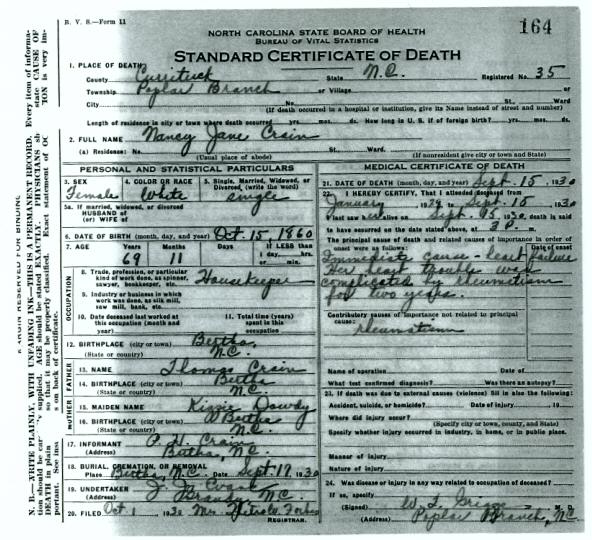 B. V. S.—Form 11
164
NORTH CAROLINA STATE BOARD OF HEALTH
BUREAU OF VITAL STATISTICS
STANDARD CERTIFICATE OF DEATH
1. PLACE OF DEATH
County Currituck State N.C. Registered No. 35
Township Poplar Branch or Village or
City No. St., Ward
(If death occurred in a hospital or institution, give its Name instead of street and number)
Length of residence in city or town where death occurred yrs. mos. ds. How long in U. S. if of foreign birth? yrs. mos. ds.
2. FULL NAME Nancy Jane Crain
(a) Residence: No. St., Ward.
(Usual place of abode) (If nonresident give city or town and State)
PERSONAL AND STATISTICAL PARTICULARS
3. SEX 4. COLOR OR RACE 5. Single, Married, Widowed, or Divorced, (write the word)
Female White single
5a. If married, widowed, or divorced
HUSBAND of
(or) WIFE of
6. DATE OF BIRTH (month, day, and year) Oct. 15 1860
7. AGE Years Months Days If LESS than
1 day, hrs.
or min.
69 11
OCCUPATION
8. Trade, profession, or particular kind of work done, as spinner, sawyer, bookkeeper, etc. Housekeeper
9. Industry or business in which work was done, as silk mill, saw mill, bank, etc.
10. Date deceased last worked at this occupation (month and year)
11. Total time (years) spent in this occupation
12. BIRTHPLACE (city or town) Bertha,
(State or country) N.C.
FATHER
13. NAME Thomas Crain
14. BIRTHPLACE (city or town) Bertha
(State or country) N.C.
MOTHER
15. MAIDEN NAME Dowdy
16. BIRTHPLACE (city or town) Bertha
(State or country) N.C.
17. INFORMANT P. H. Crain
(Address) Bertha, N.C.
18. BURIAL, CREMATION, OR REMOVAL
Place Bertha, N.C. Date Sept 17, 1930
19. UNDERTAKER
(Address) N.C.
20. FILED Oct 1 1930 Mrs. Forbes
REGISTRAR.
MEDICAL CERTIFICATE OF DEATH
21. DATE OF DEATH (month, day, and year) Sept. 15, 1930
22. I HEREBY CERTIFY, That I attended deceased from
January 1929 to Sept. 15, 1930
I last saw her alive on Sept. 15 1930, death is said
to have occurred on the date stated above, at 3 P. m.
The principal cause of death and related causes of importance in order of
onset were as follows: Date of onset
Immediate cause - heart failure
Her heart trouble was
complicated by rheumatism
for two years.
Contributory causes of importance not related to principal
cause:
rheumatism
Name of operation Date of
What test confirmed diagnosis? Was there an autopsy?
23. If death was due to external causes (violence) fill in also the following:
Accident, suicide, or homicide? Date of injury 19
Where did injury occur?
(Specify city or town, county, and State)
Specify whether injury occurred in industry, in home, or in public place.
Manner of injury
Nature of injury
24. Was disease or injury in any way related to occupation of deceased?
If so, specify
(Signed) W. T. Griggs M. D.
(Address) Poplar Branch, N.C.